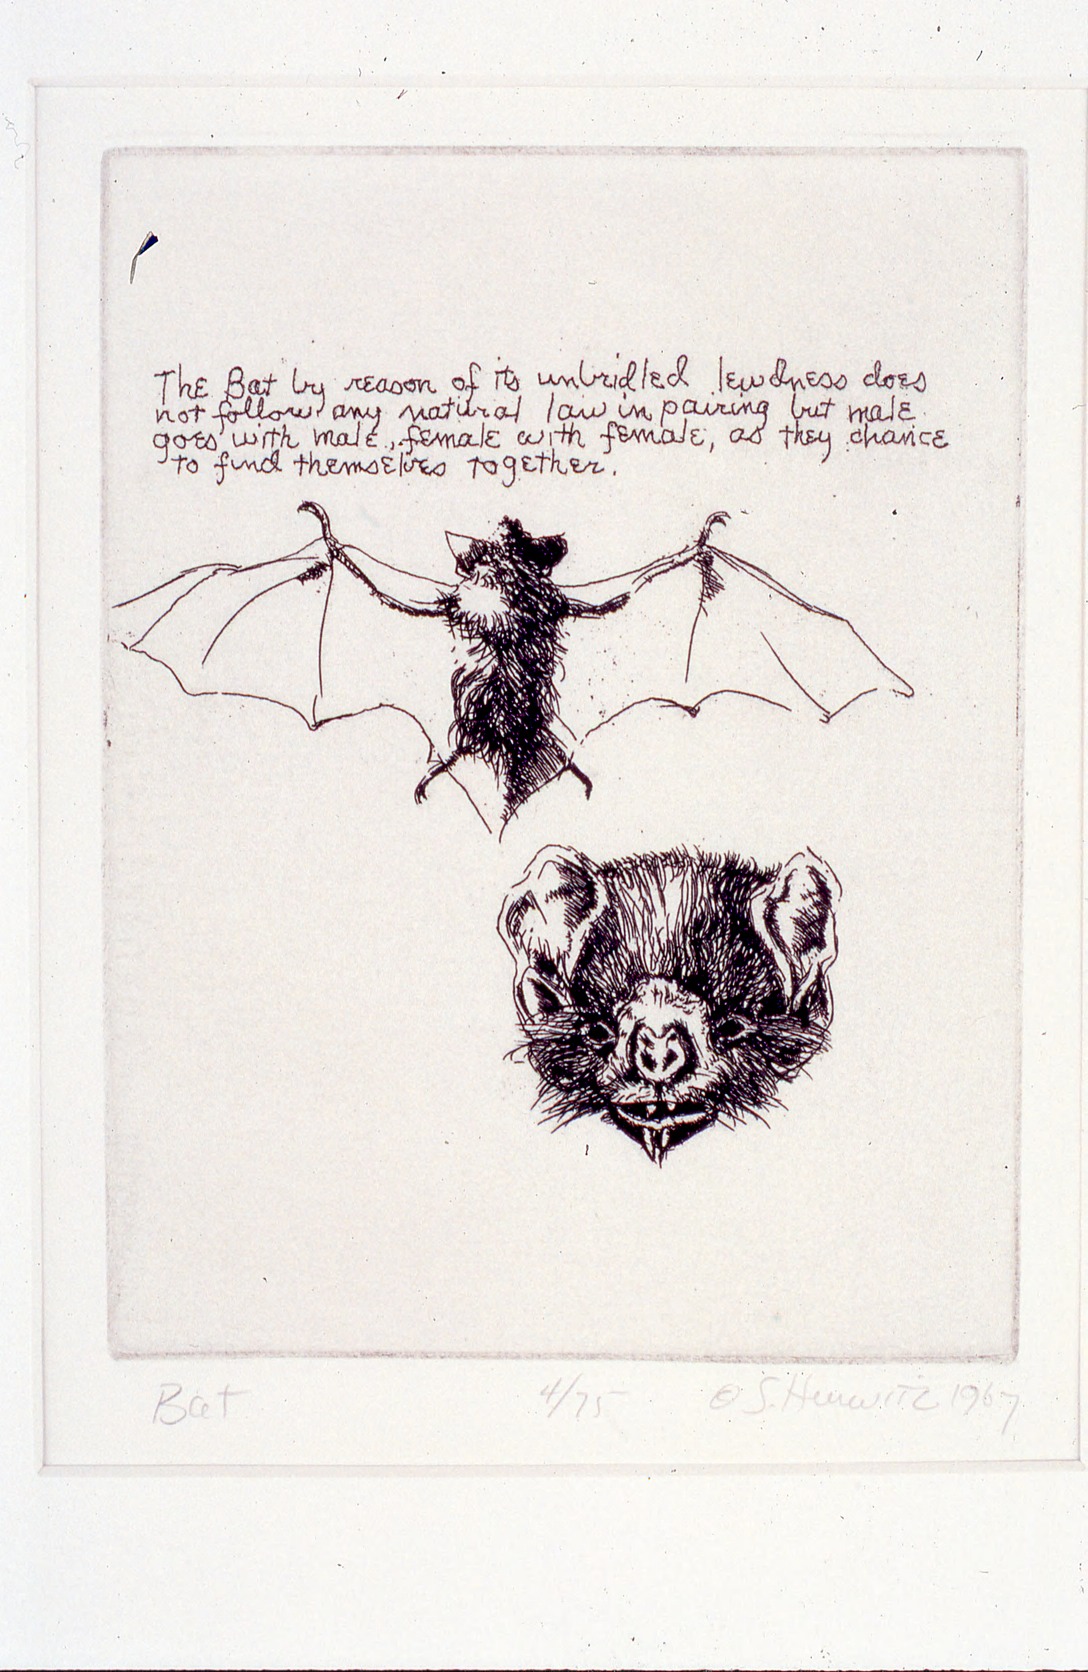 The Bat by reason of its unbridled lewdness does
not follow any natural law in pairing but male
goes with male, female with female, as they chance
to find themselves together.
Bat 4/75 © S. Hurwitz 1967